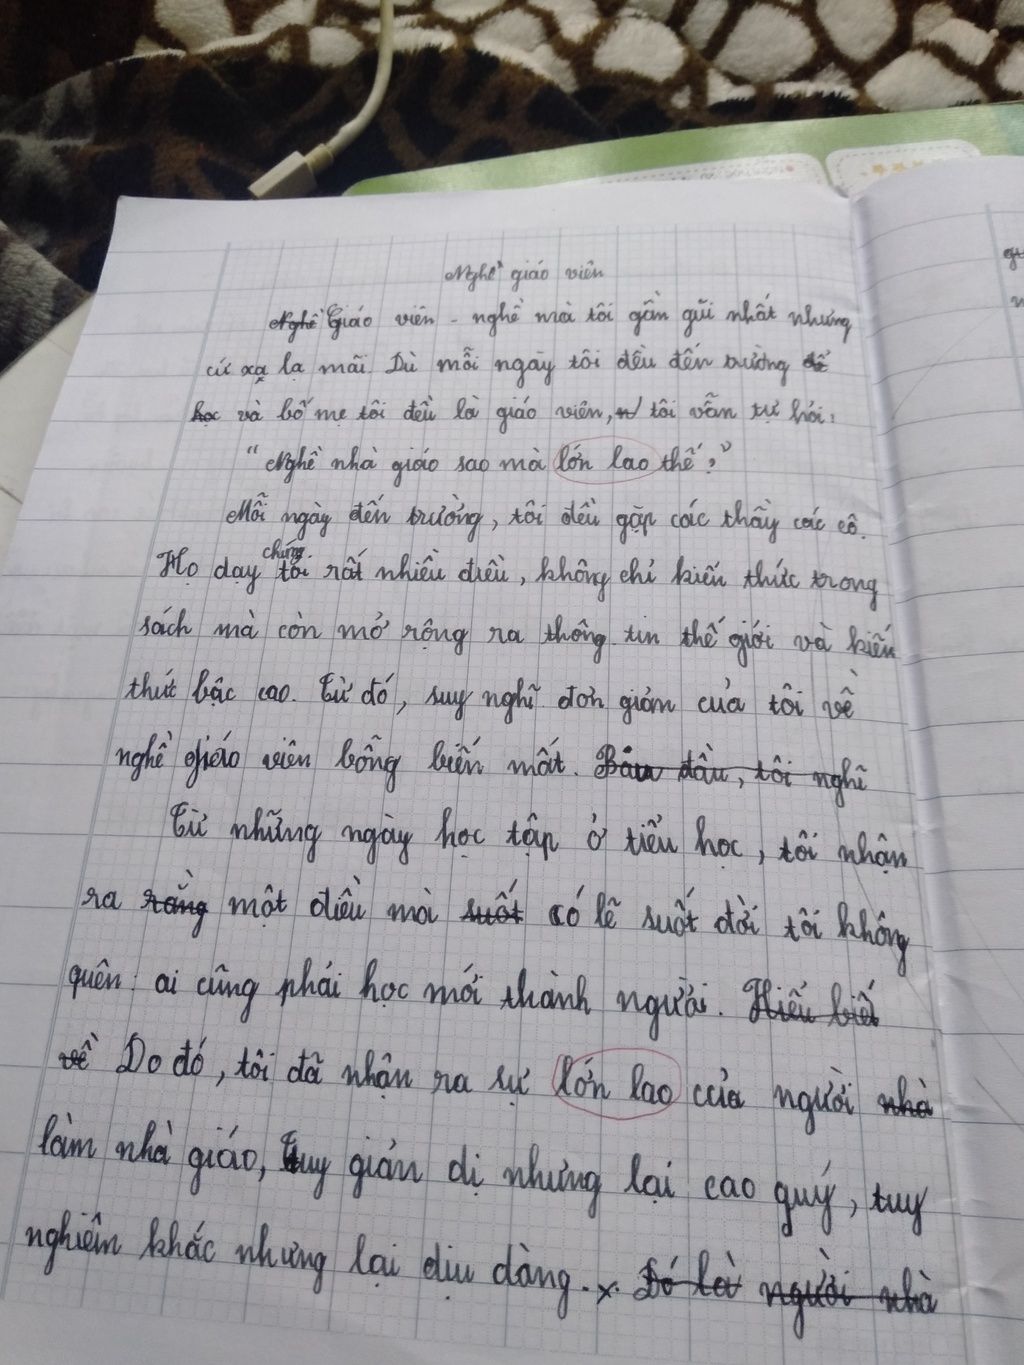 Nghề giáo viên
Nghề Giáo viên - nghề mà tôi gần gũi nhất nhưng
cứ xa lạ mãi. Dù mỗi ngày tôi đều đến trường để
học và bố mẹ tôi đều là giáo viên, tôi vẫn tự hỏi:
"Nghề nhà giáo sao mà lớn lao thế?"
Mỗi ngày đến trường, tôi đều gặp các thầy các cô.
chúng
Họ dạy tôi rất nhiều điều, không chỉ kiến thức trong
sách mà còn mở rộng ra thông tin thế giới và kiến
thức bậc cao. Từ đó, suy nghĩ đơn giản của tôi về
nghề giáo viên bỗng biến mất. Ban đầu, tôi nghĩ
Từ những ngày học tập ở tiểu học, tôi nhận
ra rằng một điều mà suốt có lẽ suốt đời tôi không
quên: ai cũng phải học mới thành người. Hiểu biết
về Do đó, tôi đã nhận ra sự lớn lao của người nhà
làm nhà giáo, tuy giản dị nhưng lại cao quý, tuy
nghiêm khắc nhưng lại dịu dàng. x. Đó là người nhà